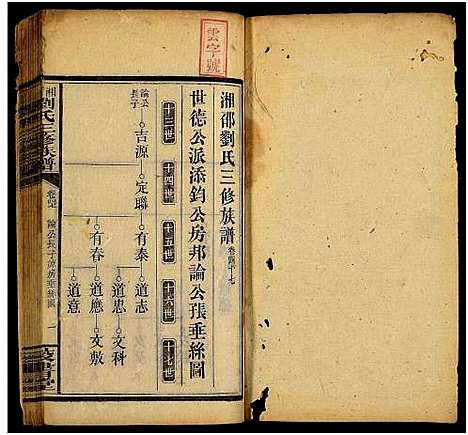 雲字號
湘邵劉氏三修族譜 卷四十七
世德公派添鈞公房邦論公張垂絲圖
十三世 十四世 十五世 十六世 十七世
論公長子
吉源 定聯 有泰 道志
道忠 文科
有春 道應 文敷
道意
劉氏三修族譜
一